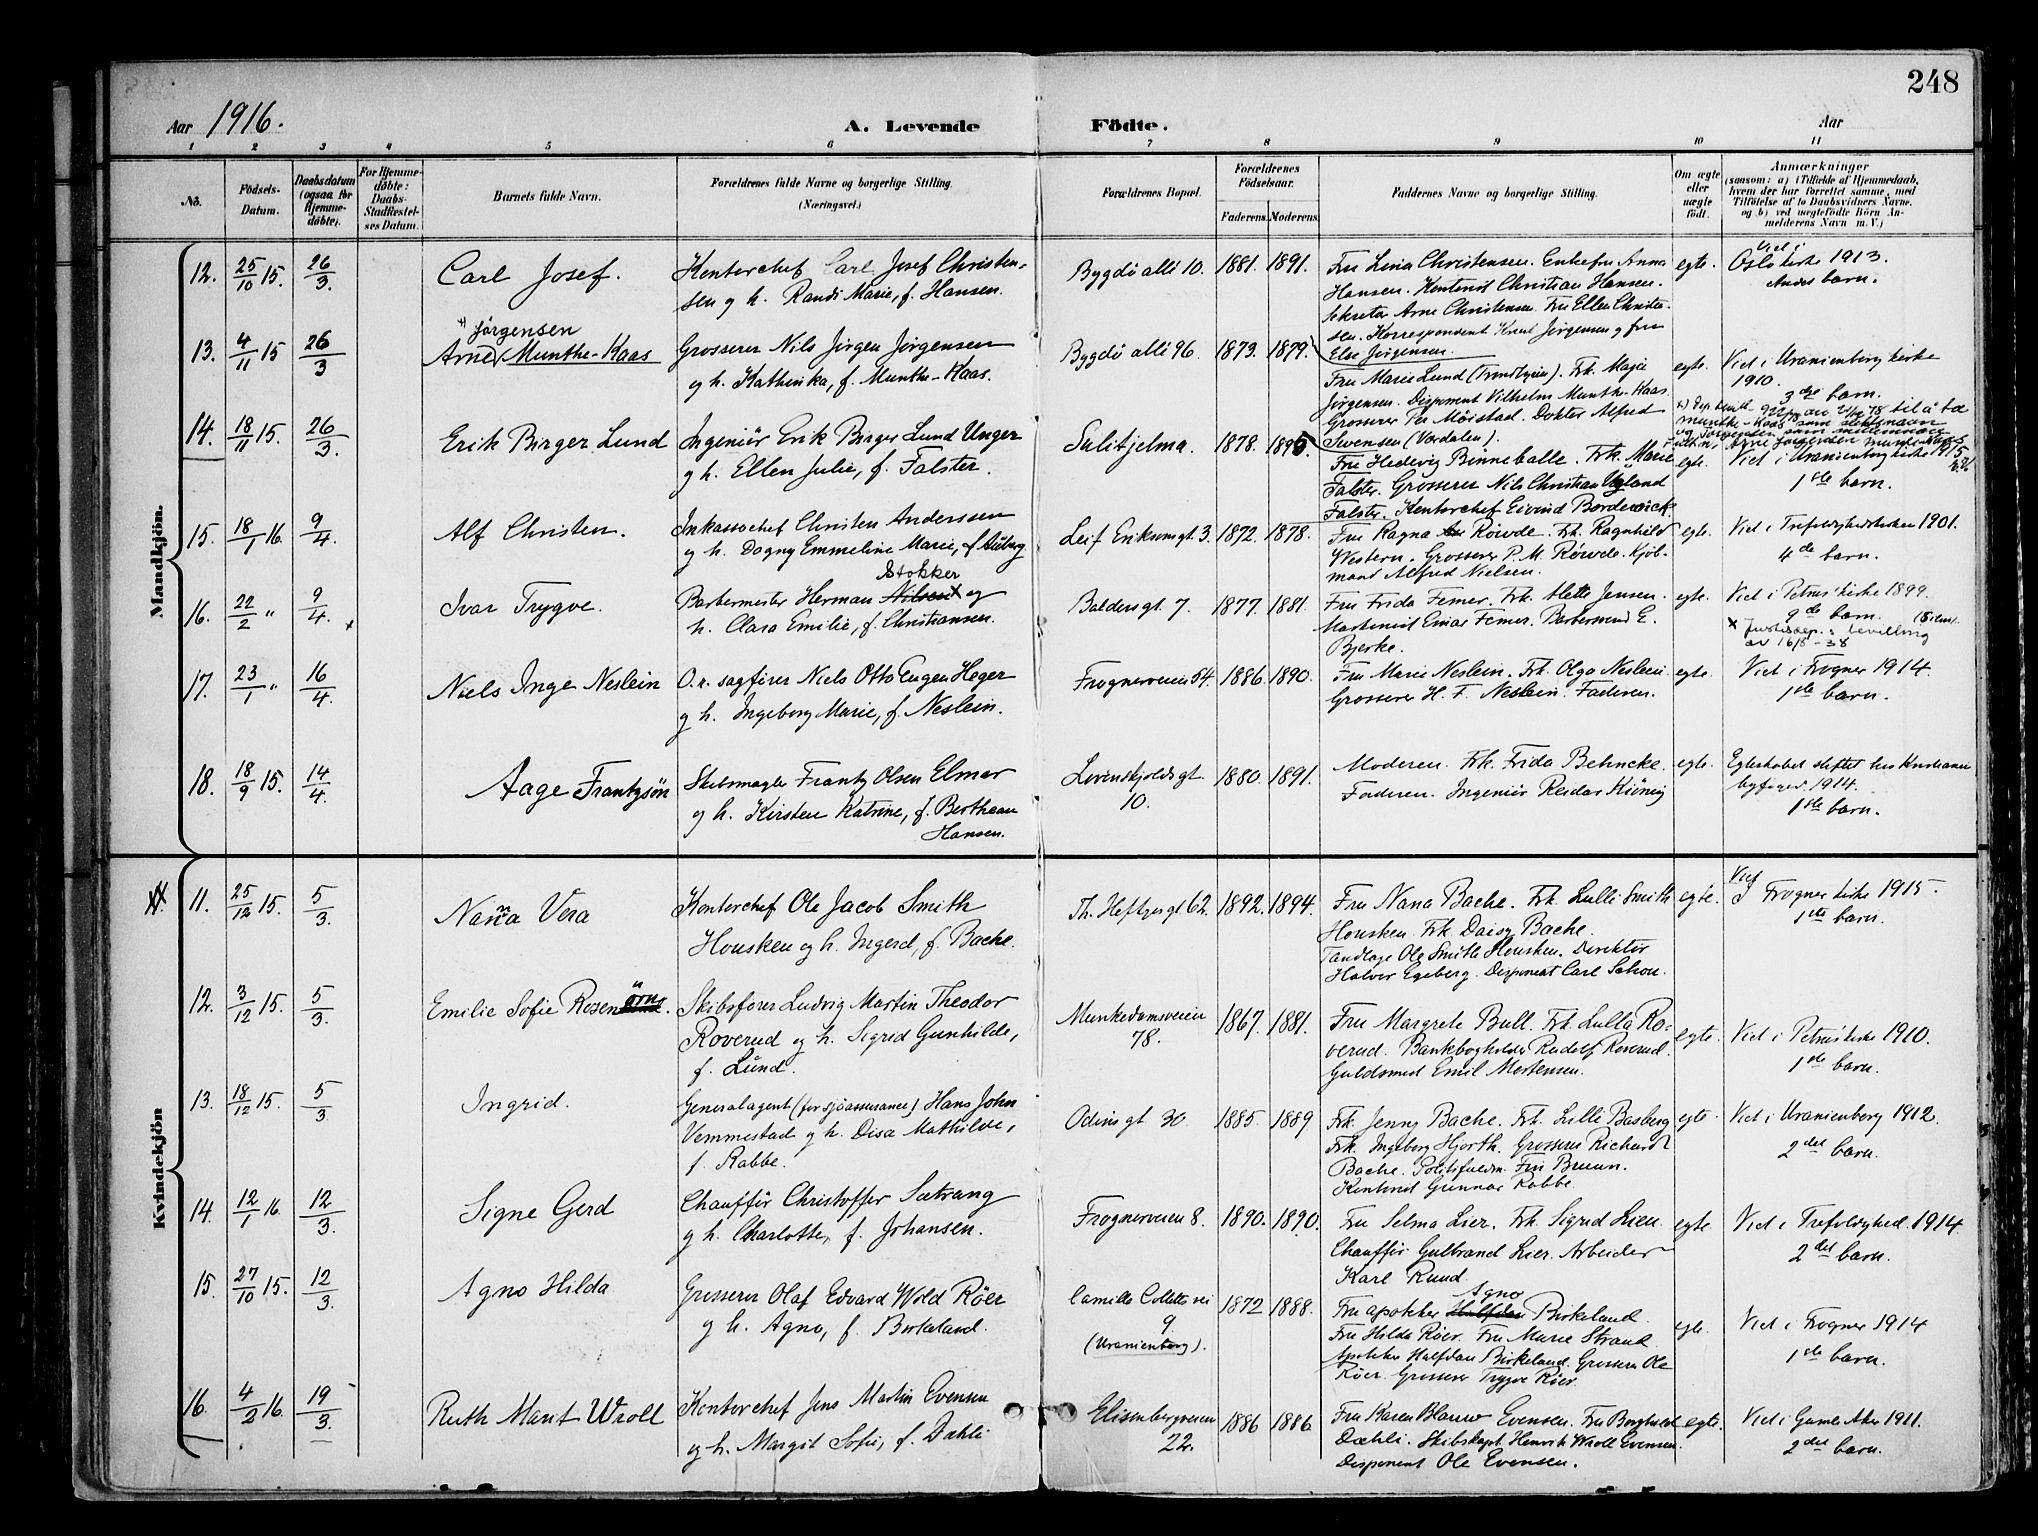 248
Aar 1916.
A. Levende Födte.
Aar
1 2 3 4 5 6 7 8 9 10 11
No.
Födsels-
Datum.
Daabsdatum
(ogsaa for
Hjemme-
döbte).
For Hjemme-
döbte:
Daabs-
Stadfæstel-
ses Datum.
Barnets fulde Navn.
Forældrenes fulde Navne og borgerlige Stilling.
(Næringsvei.)
Forældrenes Bopæl.
Forældrenes
Födselsaar.
Faderens. Moderens.
Faddernes Navne og borgerlige Stilling.
Om ægte
eller
uægte
födt.
Anmærkninger
(saasom: a) i Tilfælde af Hjemmedaab,
hvem der har forrettet samme, med
Tilföielse af to Daabsvidners Navne,
og b) ved uægtefödte Börn An-
melderens Navn m. V.)
Mandkjön.
12. 25/10 15. 26/3.
Carl Josef.
Kontorchef Carl Josef Christen-
sen og h. Randi Marie, f. Hansen.
Bygdö allé 10. 1881. 1891.
Fru Lina Christensen. Enkefru Anna
Hansen. Kontorist Christian Hansen.
Sekretær Arne Christensen. Fru Ellen Christen-
sen. Korrespondent Knut Jörgensen og fru
Else Jörgensen.
egte.
Viet i
Oslo kirke 1913.
Andet barn.
13. 4/11 15 26/3
Jörgensen
Arne Munthe-Kaas
Grosserer Nils Jörgen Jörgensen
og h. Kathinka, f. Munthe-Kaas.
Bygdö allé 96. 1873. 1879.
Fru Marie Lund (Trondhjem). Frk. Maja
Jörgensen. Disponent Vilhelm Munthe-Kaas.
Grosserer Per Möistad. Doktor Alfred
Swensen (Værdalen).
egte.
Viet i Uranienborg kirke
1910.
3die barn.
14. 18/11 15. 26/3.
Erik Birger Lund
Ingeniör Erik Birger Lund Unger
og h. Ellen Julie, f. Falster.
Sulitjelma. 1878. 1895
Fru Hedevig Binneballe. Frk. Marie
Falster. Grosserer Nils Christian Ugland
Falster. Kontorchef Eivind Borderwick
egte.
Viet i Uranienborg kirke 1915
1ste barn.
15. 18/1 16. 9/4.
Alf Christen.
Inkassochef Christen Anderssen
og h. Dagny Emmeline Marie, f. Auberg.
Leif Eriksensgt. 3. 1872. 1878.
Fru Ragna Röwde. Frk. Ragnhild
Western. Grosserer P. M. Röwde. Kjöb-
mand Alfred Nielsen.
egte.
Viet i Trefoldighedskirken 1901.
4de barn.
16. 22/2 " 9/4. x
Ivar Trygve.
Stokker
Barbermester Herman Nilsen x og
h. Clara Emilie, f. Christiansen.
Baldersgt. 7. 1877. 1881.
Fru Frida Femer. Frk. Mette Jensen.
Maskinist Einar Femer. Barbersvend E.
Bjerke.
egte.
Viet i Petrus kirke 1899.
9de barn.
x Justisdep.s bevilling
av 16/8-38
17. 23/1 " 16/4.
Niels Inge Neslein
O.r. sagförer Niels Otto Eugen Heger
og h. Ingeborg Marie, f. Neslein.
Frognerveien 54. 1886. 1890.
Fru Marie Neslein. Frk. Olga Neslein.
Grosserer H. F. Neslein. Faderen.
egte.
Viet i Frogner 1914.
1ste barn.
18. 18/9 15. 14/4.
Aage Frantzsön
Skibsmægler Frantz Olsen Elmer
og h. Kirsten Katrine, f. Bertheau
Hansen.
Lövenskjoldsgt
10. 1880. 1891.
Moderen. Frk. Frida Behncke.
Faderen. Ingeniör Reidar König
egte.
Egteskabet stiftet hos Kristiania
byfoged 1914.
1ste barn.
Kvindekjön
11. 25/12 15. 5/3.
Nanna Vera
Kontorchef Ole Jacob Smith
Housken og h. Ingerd, f. Bache.
Th. Heftyesgt 62. 1892. 1894.
Fru Nana Bache. Frk. Lulli Smith
Housken. Frk. Daisy Bache.
Tandlæge Ole Smith Housken. Direktör
Halvor Egeberg. Disponent Carl Schou.
egte.
Viet
I Frogner kirke 1915.
1ste barn.
12. 3/12 15. 5/3.
Emilie Sofie Rosen
Skibsförer Ludvig Martin Theodor
Roverud og h. Sigrid Gunhilde,
f. Lund.
Munkedamsveien
78. 1867. 1881.
Fru Margrete Bull. Frk. Lulla Ro-
verud. Bankbogholder Rudolf Roverud.
Guldsmed Emil Mortensen.
egte.
Viet i Petrus kirke 1910.
1ste barn.
13. 18/12 15. 5/3
Ingrid.
Generalagent (for sjöassurance) Hans John
Vemmestad og h. Disa Mathilde,
f. Rabbe.
Odinsgt 30. 1885. 1889
Frk. Jenny Bache. Frk. Lilli Basberg
Frk. Ingeborg Hjorth. Grosserer Richard
Bache. Politifuldm. Finn Bruun.
Kontorist Gunnar Rabbe.
egte.
Viet i Uranienborg 1912.
2det barn.
14. 12/1 16. 12/3.
Signe Gerd
Chaufför Christoffer Sætrang
og h. Charlotte, f. Johansen.
Frognerveien 8. 1890. 1890.
Fru Selma Lier. Frk. Sigrid Lien.
Chaufför Gulbrand Lier. Arbeider
Karl Ruud.
egte.
Viet i Trefoldighed. 1914.
2det barn.
15. 27/10 15. 12/3.
Agno Hilda
Grosserer Olaf Edvard Wold Röer
og h. Agno, f. Birkeland.
Camilla Colletts vei
9.
(Uranienborg). 1872 1888.
Agno
Fru apotheker Halfdan Birkeland.
Fru Hilda Röer. Fru Marie Strand
Apotheker Halfdan Birkeland. Grosserer Ole
Röer. Grosserer Trygve Röer.
egte.
Viet i Frogner 1914
1ste barn.
16. 4/2 16. 19/3.
Ruth Wroll
Kontorchef Jens Martin Evensen
og h. Margit Sofie, f. Dæhli
Elisenbergveien
22. 1886 1886
Fru Karen Evensen. Fru Borghild
Dæhli. Skibskapt. Henrik Wroll Evensen.
Disponent Ole Evensen.
egte.
Viet i Gamle Aker 1911.
2det barn.